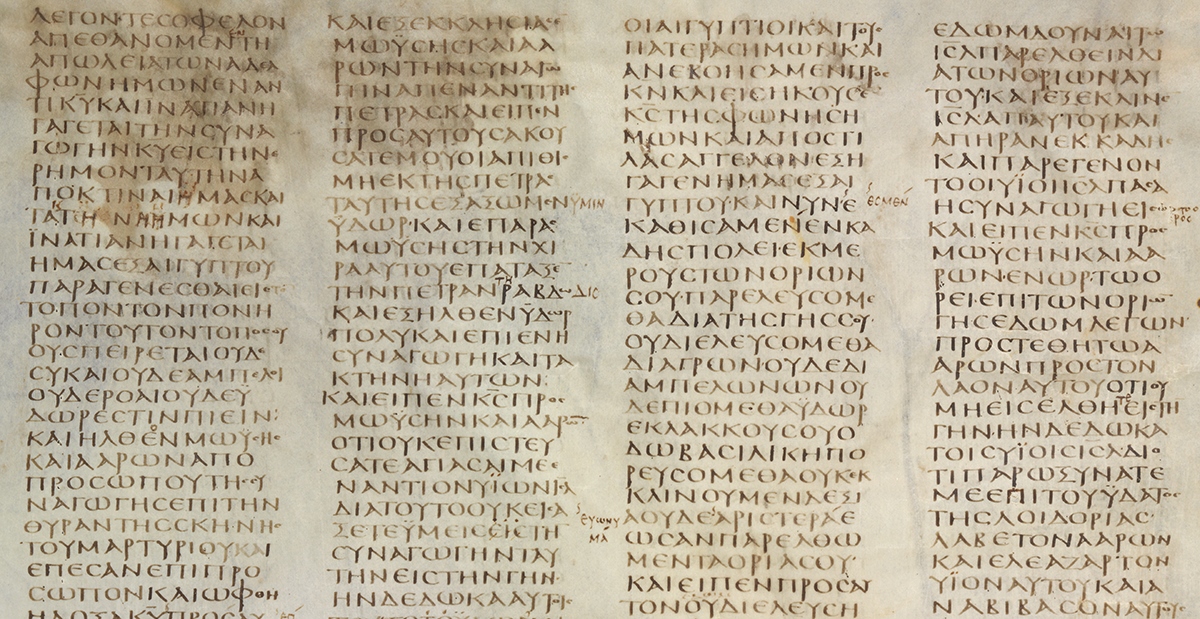 ΛΕΓΟΝΤΕϹΟΦΕΛΟΝ
ΑΠΕΘΑΝΟΜΕΝΤΗ
ΑΠΩΛΕΙΑΤΩΝΑΔΕΛ
ΦΩΝΗΜΩΝΕΝΑΝ
ΤΙΚΥΚΑΙΙΝΑΤΙΑΝΗ
ΓΑΓΕΤΑΙΤΗΝϹΥΝΑ
ΓΩΓΗΝΚΥΕΙϹΤΗΝΕ
ΡΗΜΟΝΤΑΥΤΗΝΑ
ΠΟΚΤΙΝΑΙΗΜΑϹΚΑΙ
ΗΜΩΝΚΑΙ
ΪΝΑΤΙΑΝΗΓΑΓΕΤΑΙ
ΗΜΑϹΕΞΑΙΓΥΠΤΟΥ
ΠΑΡΑΓΕΝΕϹΘΑΙΕΙϹ
ΤΟΠΟΝΤΟΝΠΟΝΗ
ΡΟΝΤΟΥΤΟΝΤΟΠΟϹΟΥ
ΟΥϹΠΕΙΡΕΤΑΙΟΥΔΕ
ϹΥΚΑΙΟΥΔΕΑΜΠΕΛΟΙ
ΟΥΔΕΡΟΑΙΟΥΔΕΥ
ΔΩΡΕϹΤΙΝΠΙΕΙΝ:
ΚΑΙΗΛΘΕΝΜΩΫϹΗϹ
ΚΑΙΑΑΡΩΝΑΠΟ
ΠΡΟϹΩΠΟΥΤΗϹϹΥ
ΝΑΓΩΓΗϹΕΠΙΤΗΝ
ΘΥΡΑΝΤΗϹϹΚΗΝΗϹ
ΤΟΥΜΑΡΤΥΡΙΟΥΚΑΙ
ΕΠΕϹΑΝΕΠΙΠΡΟ
ϹΩΠΟΝΚΑΙΩΦΘΗ
ΚΑΙΕΞΕΚΚΛΗϹΙΑϹΕ
ΜΩΫϹΗϹΚΑΙΑΑ
ΡΩΝΤΗΝϹΥΝΑΓΩ
ΓΗΝΑΠΕΝΑΝΤΙΤΗϹ
ΠΕΤΡΑϹΚΑΙΕΙΠΕΝ
ΠΡΟϹΑΥΤΟΥϹΑΚΟΥ
ϹΑΤΕΜΟΥΟΙΑΠΙΘΙϹ
ΜΗΕΚΤΗϹΠΕΤΡΑϹ
ΤΑΥΤΗϹΕΞΑΞΩΜΕΝΫΜΙΝ
ΫΔΩΡ·ΚΑΙΕΠΑΡΑϹ
ΜΩΫϹΗϹΤΗΝΧΙ
ΡΑΑΥΤΟΥΕΠΑΤΑΞΕ
ΤΗΝΠΕΤΡΑΝΤΗΡΑΒΔΩΔΙϹ
ΚΑΙΕΞΗΛΘΕΝΫΔΩΡ
ΠΟΛΥΚΑΙΕΠΙΕΝΗ
ϹΥΝΑΓΩΓΗΚΑΙΤΑ
ΚΤΗΝΗΑΥΤΩΝ:
ΚΑΙΕΙΠΕΝΚϹΠΡΟϹ
ΜΩΫϹΗΝΚΑΙΑΑΡΩΝ
ΟΤΙΟΥΚΕΠΙϹΤΕΥ
ϹΑΤΕΑΓΙΑϹΑΙΜΕΕ
ΝΑΝΤΙΟΝΥΪΩΝΙΗΛ
ΔΙΑΤΟΥΤΟΟΥΚΕΙϹΑ
ΞΕΤΕΫΜΕΙϹΕΙϹΤΗ
ϹΥΝΑΓΩΓΗΝΤΑΥ
ΤΗΝΕΙϹΤΗΝΓΗΝ
ΗΝΔΕΔΩΚΑΑΥΤΟΙϹ
ΟΙΑΙΓΥΠΤΙΟΙΚΑΙΤΟΥϹ
ΠΑΤΕΡΑϹΗΜΩΝΚΑΙ
ΑΝΕΒΟΗϹΑΜΕΝΠΡΟϹ
ΚΝΚΑΙΕΙϹΗΚΟΥϹΕ
ΚϹΤΗϹΦΩΝΗϹΗ
ΜΩΝΚΑΙΑΠΟϹΤΙ
ΛΑϹΑΓΓΕΛΟΝΕΞΗ
ΓΑΓΕΝΗΜΑϹΕΞΑΙ
ΓΥΠΤΟΥΚΑΙΝΥΝΕϹΜΕΝ
ΚΑΘΙϹΑΜΕΝΕΝΚΑ
ΔΗϹΠΟΛΕΙ·ΕΚΜΕ
ΡΟΥϹΤΩΝΟΡΙΩΝ
ϹΟΥ·ΠΑΡΕΛΕΥϹΟΜΕ
ΘΑΔΙΑΤΗϹΓΗϹϹΟΥ·
ΟΥΔΙΕΛΕΥϹΟΜΕΘΑ
ΔΙΑΓΡΩΝΟΥΔΕΔΙ
ΑΜΠΕΛΩΝΩΝΟΥ
ΔΕΠΙΟΜΕΘΑΫΔΩΡ
ΕΚΛΑΚΚΟΥϹΟΥΟ
ΔΩΒΑϹΙΛΙΚΗΠΟ
ΡΕΥϹΟΜΕΘΑΟΥΚΕΚ
ΚΛΙΝΟΥΜΕΝΔΕΞΙ
ΕΥΩΝΥΜΑ
ΑΟΥΔΕΑΡΙϹΤΕΡΑΕ
ΩϹΑΝΠΑΡΕΛΘΩ
ΜΕΝΤΑΟΡΙΑϹΟΥ
ΚΑΙΕΙΠΕΝΠΡΟϹΑΥ
ΤΟΝΟΥΔΙΕΛΕΥϹΗ
ΕΔΩΜΔΟΥΝΑΙΤΩ
ΙϹΛΠΑΡΕΛΘΕΙΝΔΙ
ΑΤΩΝΟΡΙΩΝΑΥ
ΤΟΥ·ΚΑΙΕΞΕΚΛΙΝΕ
ΙϹΛΑΠΑΥΤΟΥΚΑΙ
ΑΠΗΡΑΝΕΚΚΑΔΗϹ
ΚΑΙΠΑΡΕΓΕΝΟΝ
ΤΟΟΙΥΪΟΙΙϹΛΠΑϹΑ
ΗϹΥΝΑΓΩΓΗΕΙϹ
ΚΑΙΕΙΠΕΝΚϹΠΡΟϹ
ΜΩΫϹΗΝΚΑΙΑΑ
ΡΩΝ·ΕΝΩΡ·ΤΩΟ
ΡΕΙΕΠΙΤΩΝΟΡΙΩΝ
ΓΗϹΕΔΩΜΛΕΓΩΝ
ΠΡΟϹΤΕΘΗΤΩΑ
ΑΡΩΝΠΡΟϹΤΟΝ
ΛΑΟΝΑΥΤΟΥΟΤΙΟΥ
ΜΗΕΙϹΕΛΘΗΤΕΕΙϹΤΗ
ΓΗΝ·ΗΝΔΕΔΩΚΑ
ΤΟΙϹΥΪΟΙϹΙϹΛΔΙΟ
ΤΙΠΑΡΩΞΥΝΑΤΕ
ΜΕΕΠΙΤΟΥΫΔΑΤΟϹ
ΤΗϹΛΟΙΔΟΡΙΑϹ·
ΛΑΒΕΤΟΝΑΑΡΩΝ
ΚΑΙΕΛΕΑΖΑΡΤΟΝ
ΥΪΟΝΑΥΤΟΥΚΑΙΑ
ΝΑΒΙΒΑϹΟΝΑΥΤΟΥϹ